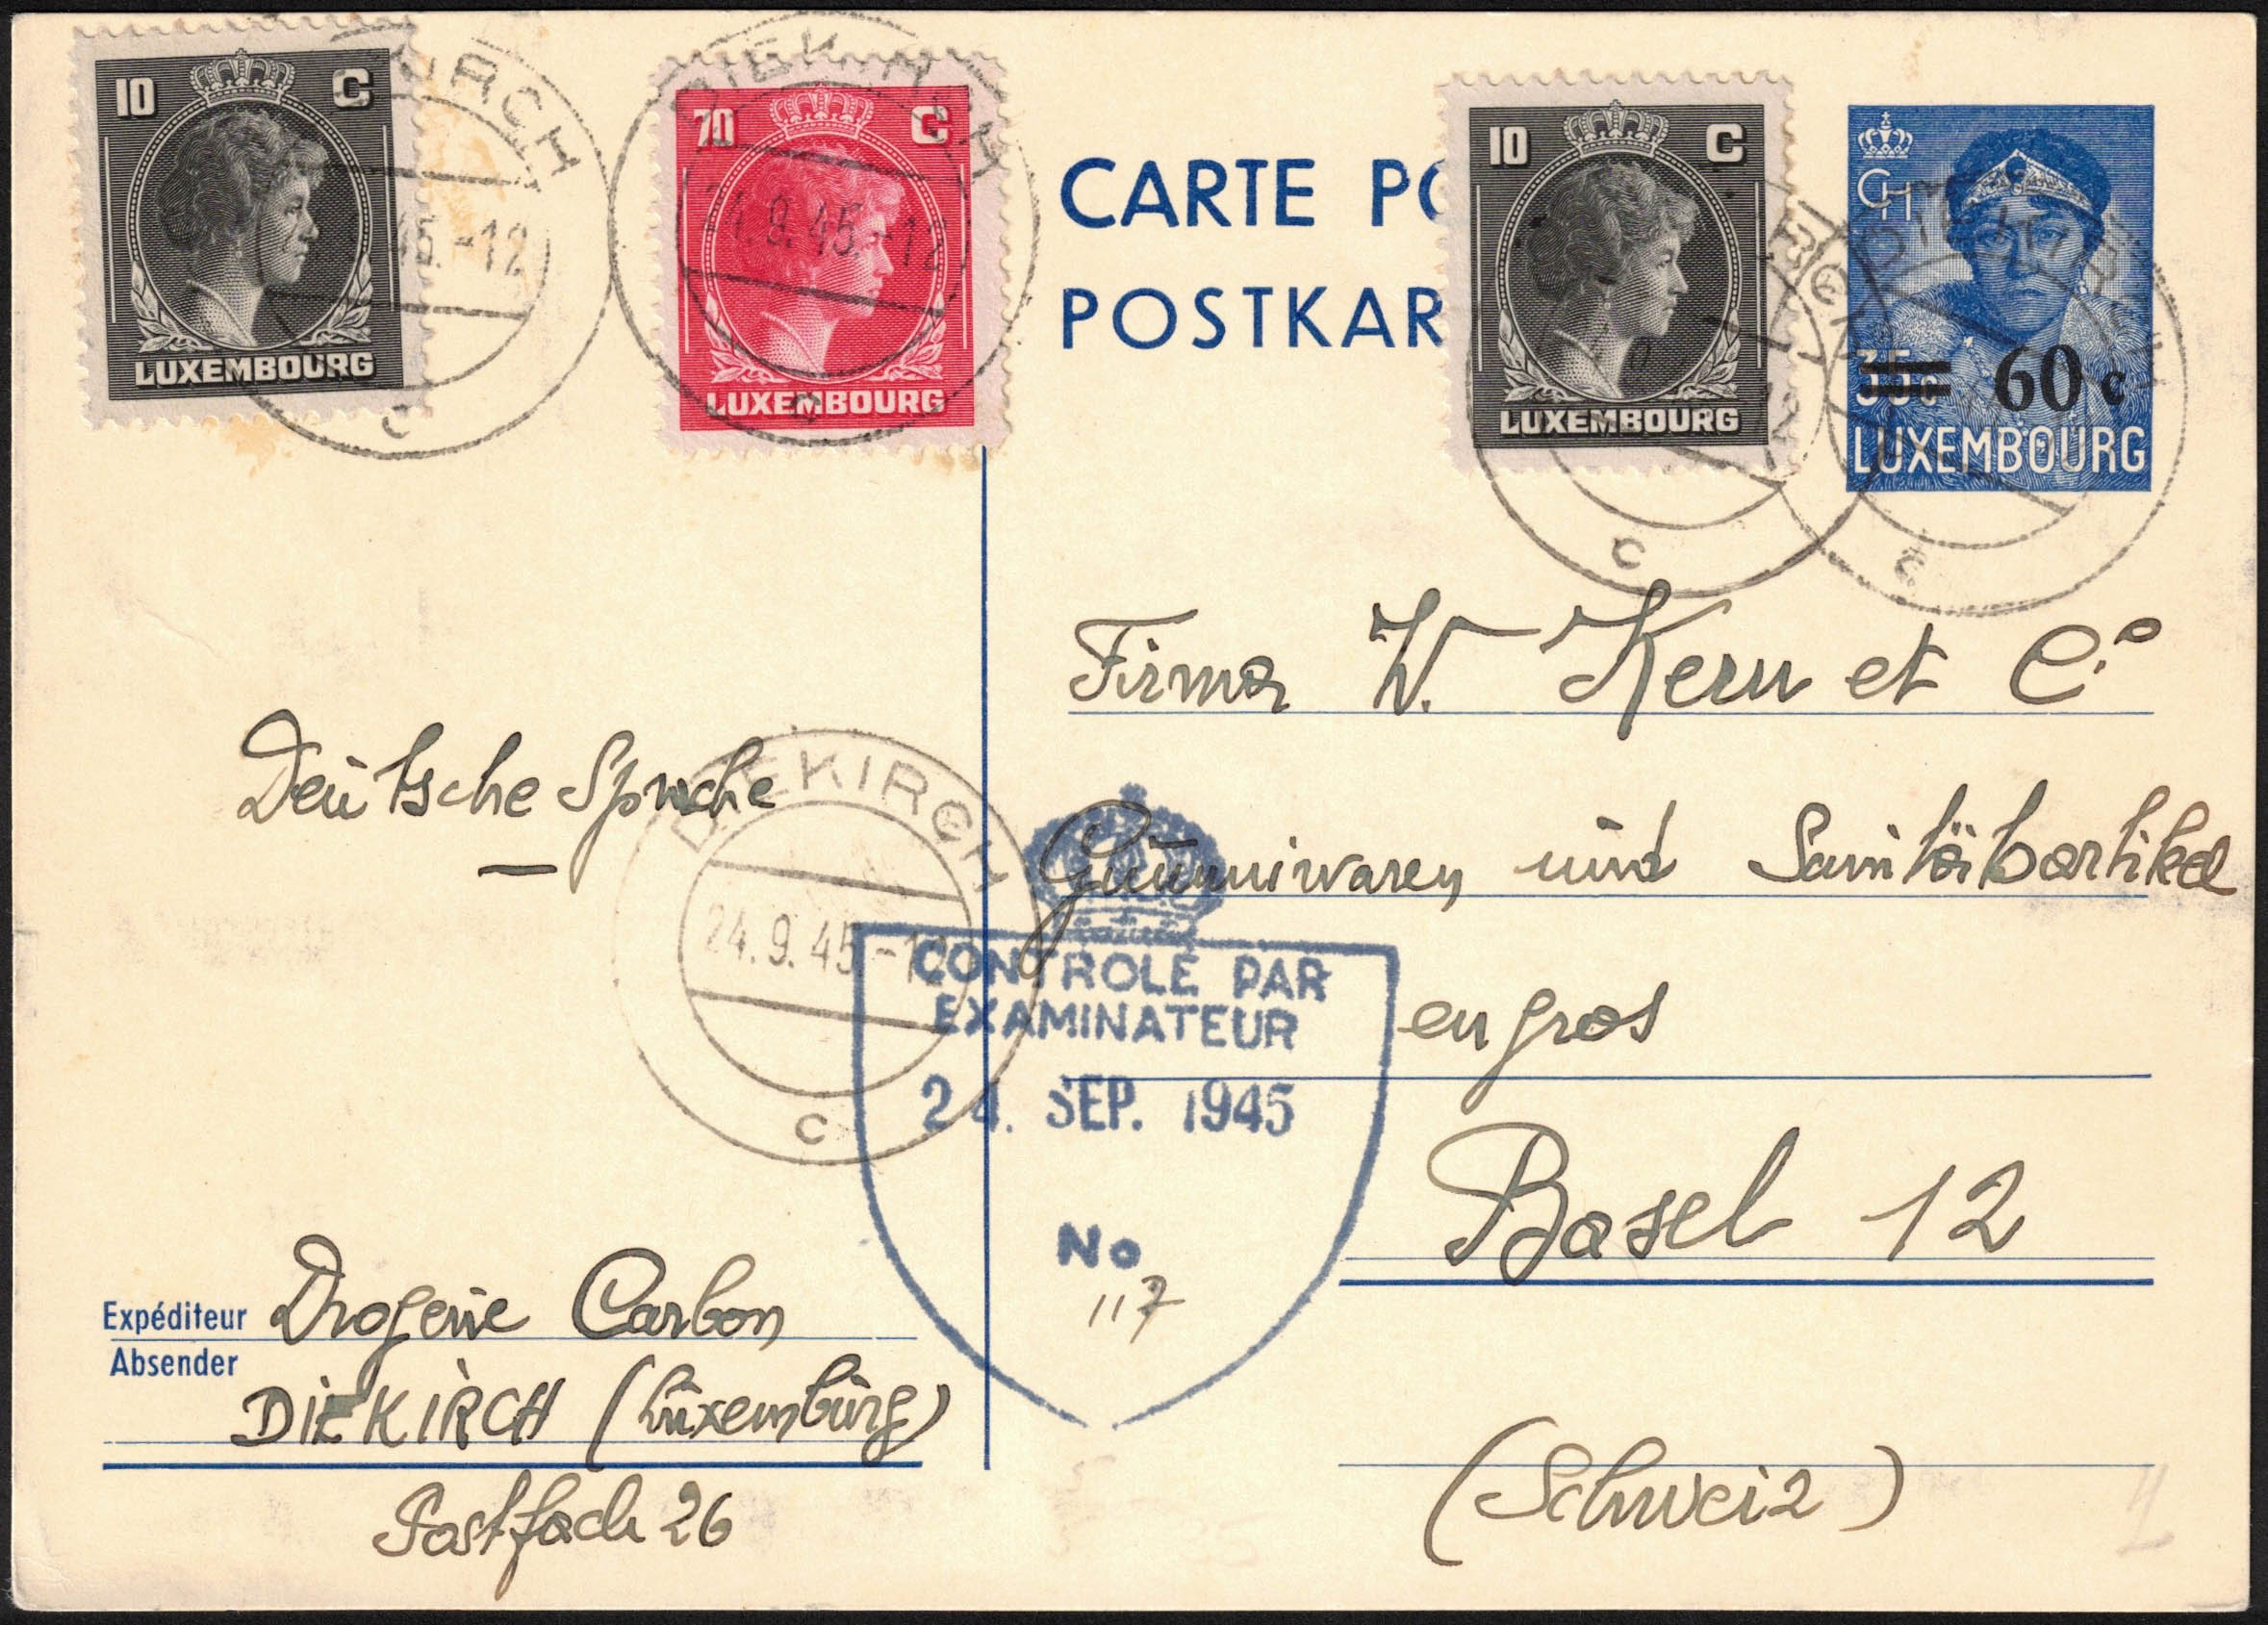 10 C
LUXEMBOURG
DIEKIRCH
45.-12
c
70 C
LUXEMBOURG
DIEKIRCH
24.9.45.-12
c
CARTE PO
POSTKAR
10 C
LUXEMBOURG
c
CH
35c 60 c
LUXEMBOURG
DIEKIRCH
c
Firma W. Kern et Co
Gummiwaren und Sanitätsartikel
en gros
Basel 12
(Schweiz)
Deutsche Sprache
DIEKIRCH
24.9.45-12
c
CONTROLE PAR
EXAMINATEUR
24. SEP. 1945
No
117
Expéditeur Drogerie Carbon
Absender
DIEKIRCH (Luxemburg)
Postfach 26